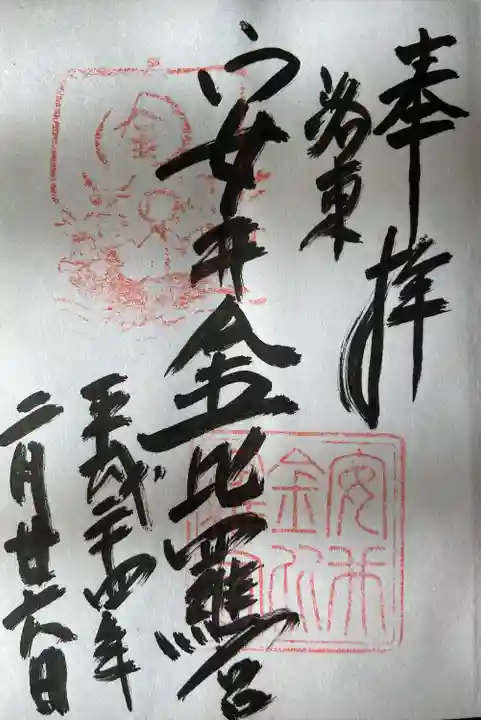 奉拝
洛東
安井金比羅宮
平成二十四年
二月廿六日
安井
金比
羅宮